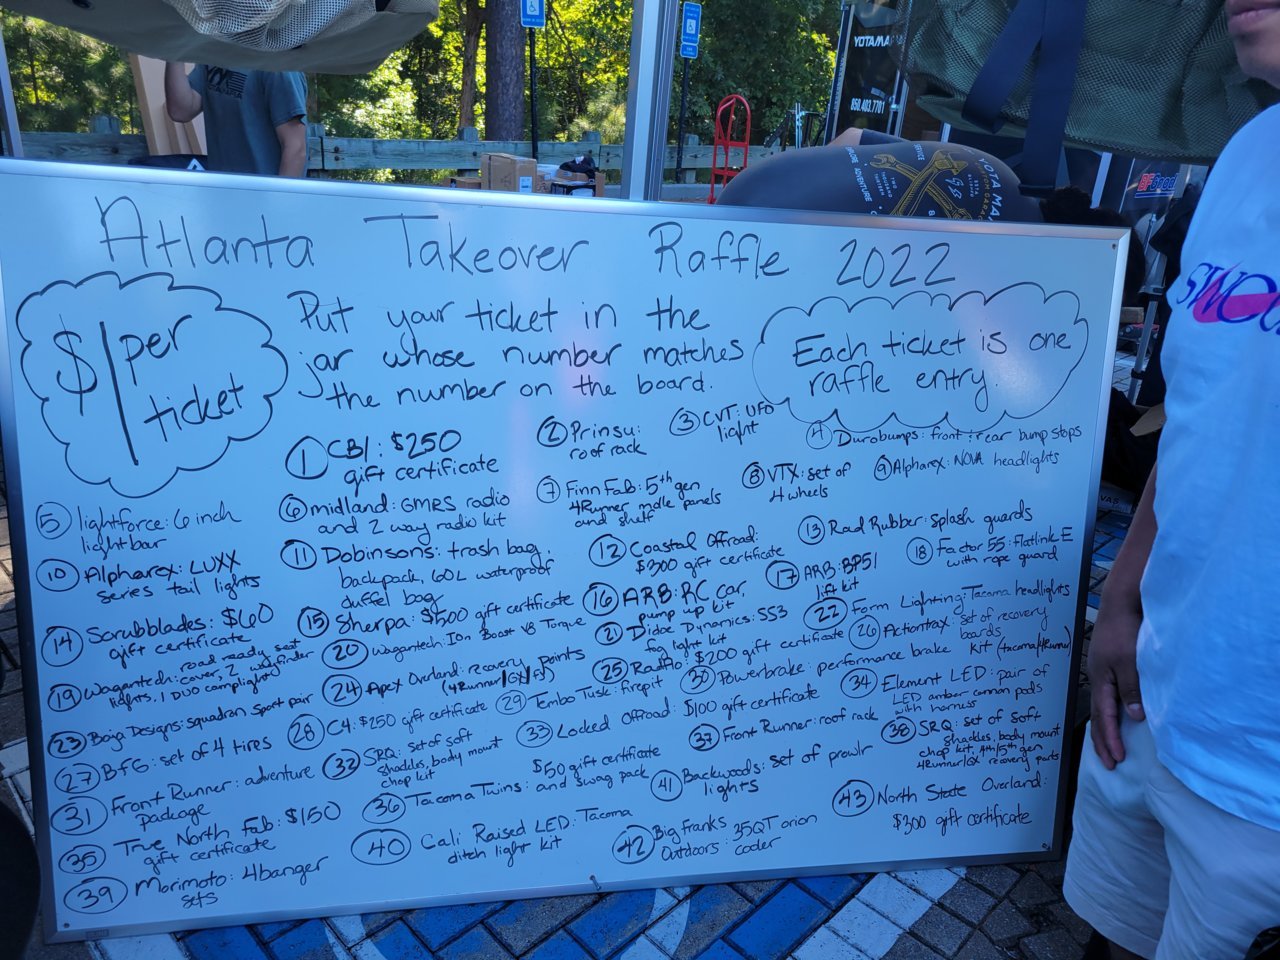 Atlanta Takeover Raffle 2022
$1 per ticket
Put your ticket in the
jar whose number matches
the number on the board.
Each ticket is one
raffle entry.
1 CBI: $250
gift certificate
2 Prinsu:
roof rack
3 CVT: UFO
light
4 Durobumps: front & rear bump stops
5 lightforce: 6 inch
light bar
6 midland: GMRS radio
and 2 way radio kit
7 Finn Fab: 5th gen
4Runner molle panels
and shelf
8 VTX: set of
4 wheels
9 Alpharex: NOVA headlights
10 Alpharex: LUXX
series tail lights
11 Dobinsons: trash bag,
backpack, 60L waterproof
duffel bag
12 Coastal Offroad:
$300 gift certificate
13 Road Rubber: splash guards
14 Scrubblades: $60
gift certificate
15 Sherpa: $500 gift certificate
16 ARB: RC car,
pump up kit
17 ARB: BP51
lift kit
18 Factor 55: Flatlink E
with rope guard
19 Wagantech: road ready seat
cover, 2 wayfinder
lights, 1 DUO camplight
20 Wagantech: Ion Boost V8 Torque
21 Didoe Dynamics: SS3
fog light kit
22 Form Lighting: Tacoma headlights
23 Boja Designs: squadron, sport pair
24 Apex Overland: recovery points
(4Runner/GX/FJ)
25 Radflo: $200 gift certificate
26 Actiontrax: set of recovery
boards
27 BFG: set of 4 tires
28 C4: $250 gift certificate
29 Tembo Tusk: firepit
30 Powerbrake: performance brake kit (tacoma/4Runner)
31 Front Runner: adventure
package
32 SRQ: set of soft
shackles, body mount
chop kit
33 Locked Offroad: $100 gift certificate
34 Element LED: pair of
LED amber cannon pods
with harness
35 True North Fab: $150
gift certificate
36 Tacoma Twins: $50 gift certificate
and swag pack
37 Front Runner: roof rack
38 SRQ: set of soft
shackles, body mount
chop kit, 4th/5th gen
4Runner/GX recovery parts
39 Morimoto: 4banger
sets
40 Cali Raised LED: Tacoma
ditch light kit
41 Backwoods: set of prowlr
lights
42 Big Franks
Outdoors: 35QT orion
cooler
43 North State Overland:
$300 gift certificate
YOTAMA
850.403.7701
YOTA MA